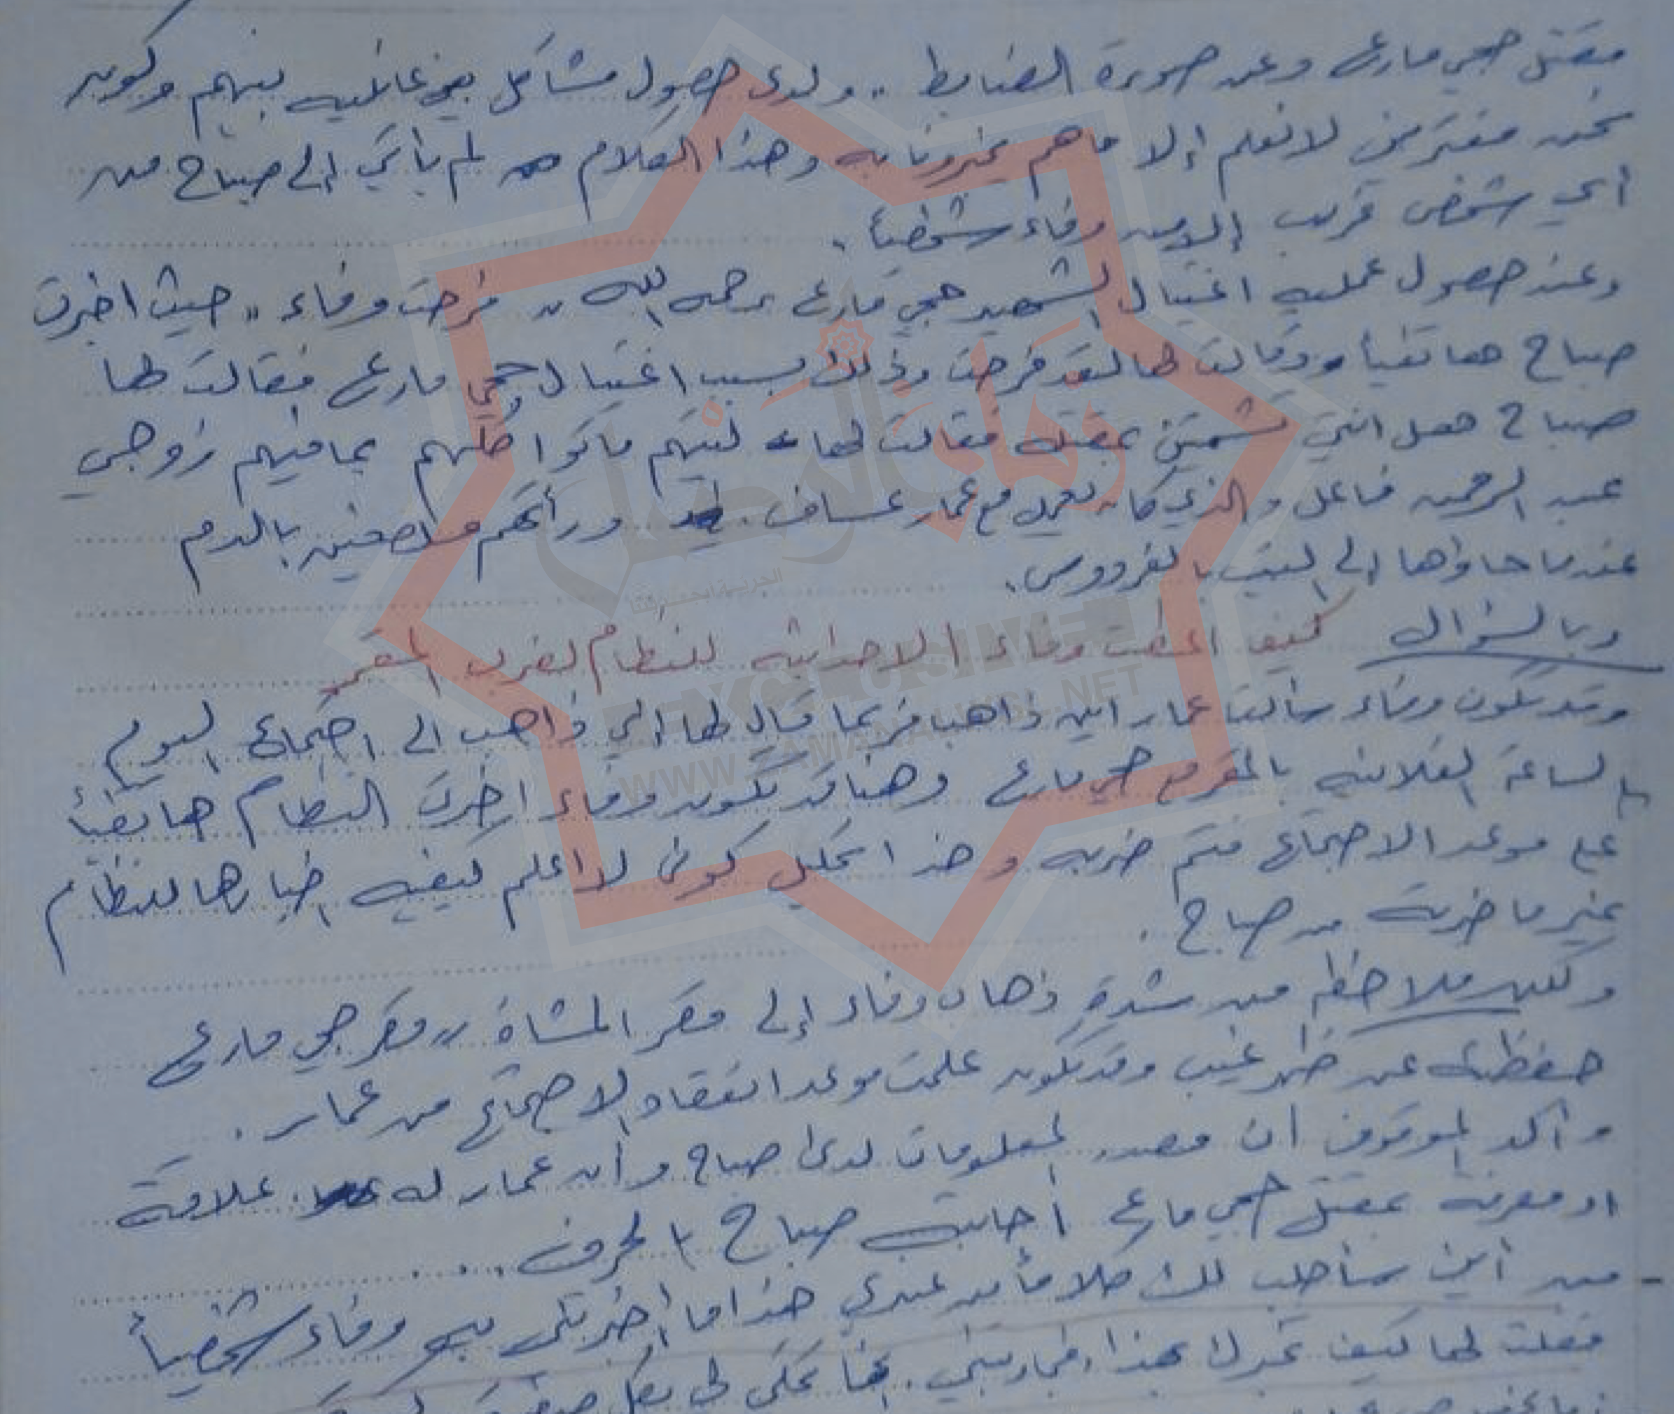 مقتل حجي مارع وعن صورة الضابط .. ولدى حصول مشاكل بين عائليه بينهم وكون
نحن مغتربين لا نعلم إلا ما هم يخبرونا به وهذا الكلام لم يأتي إلى صباح من
أي شخص قريب إلا من وفاء شخصياً .
وعند حصول عملية اغتيال الشهيد حجي مارع رحمه الله .. فرحت وفاء .. حيث اخبرت
صباح هاتفياً وقالت لها لقد فرحت وذلك بسبب اغتيال حجي مارع فقالت لها
صباح هل انتي تشمتين بمقتله فقالت لها ليتهم ماتوا كلهم بما فيهم زوجي
عبد الرحمن فاعل والذي كان يعمل مع عمار عساف . ورأتهم ملطخين بالدم
عندما جاؤا إلى البيت بالفردوس .
وبالسؤال كيف اعطت وفاء الاحداثيه للنظام لضرب المقر
وقد تكون وفاء سألت عمار اين ذاهب فربما قال لها اني ذاهب الى اجتماع اليوم
بالساعة الفلانيه بالمقر مع حجي مارع وهنا قد تكون وفاء اخبرت النظام هاتفياً
على موعد الاجتماع فتم ضربه وهذا تحليلي كوني لا اعلم كيفية اخبارها للنظام
غير ما خبرته من صباح .
ولكن ملاحظه من شدة ذهاب وفاء إلى مقر المشاة ,, مقر حجي مارع
حفظته عن ظهر غيب وقد تكون علمت موعد انعقاد الاجتماع من عمار .
وأكد الموقوف أن مصدر المعلومات لدى صباح وأن عمار له علاقة
او معرفة بمقتل حجي مارع أجابت صباح بالحرف ...
- من أين سأجلب لك كلاماً من عندي هذا ما أخبرتني به وفاء شخصياً
فقلت لها كيف تخبرك بهذا فجاوبتني . انها تحكي لي بكل